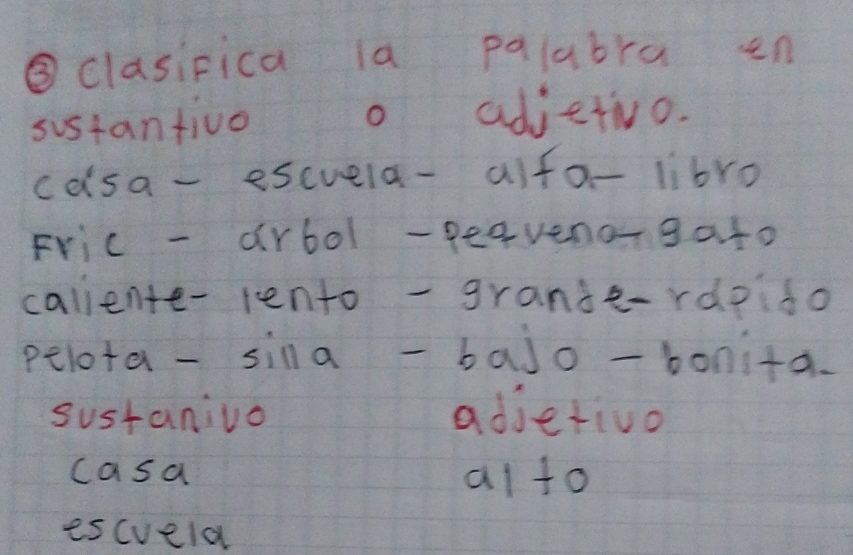 ③ clasifica la palabra en
sustantivo o adjetivo.
casa - escuela - alta - libro
Fric - arbol - pequeno - gato
caliente - lento - grande - rapido
pelota - silla - bajo - bonita.
sustanivo adjetivo
casa alto
escuela